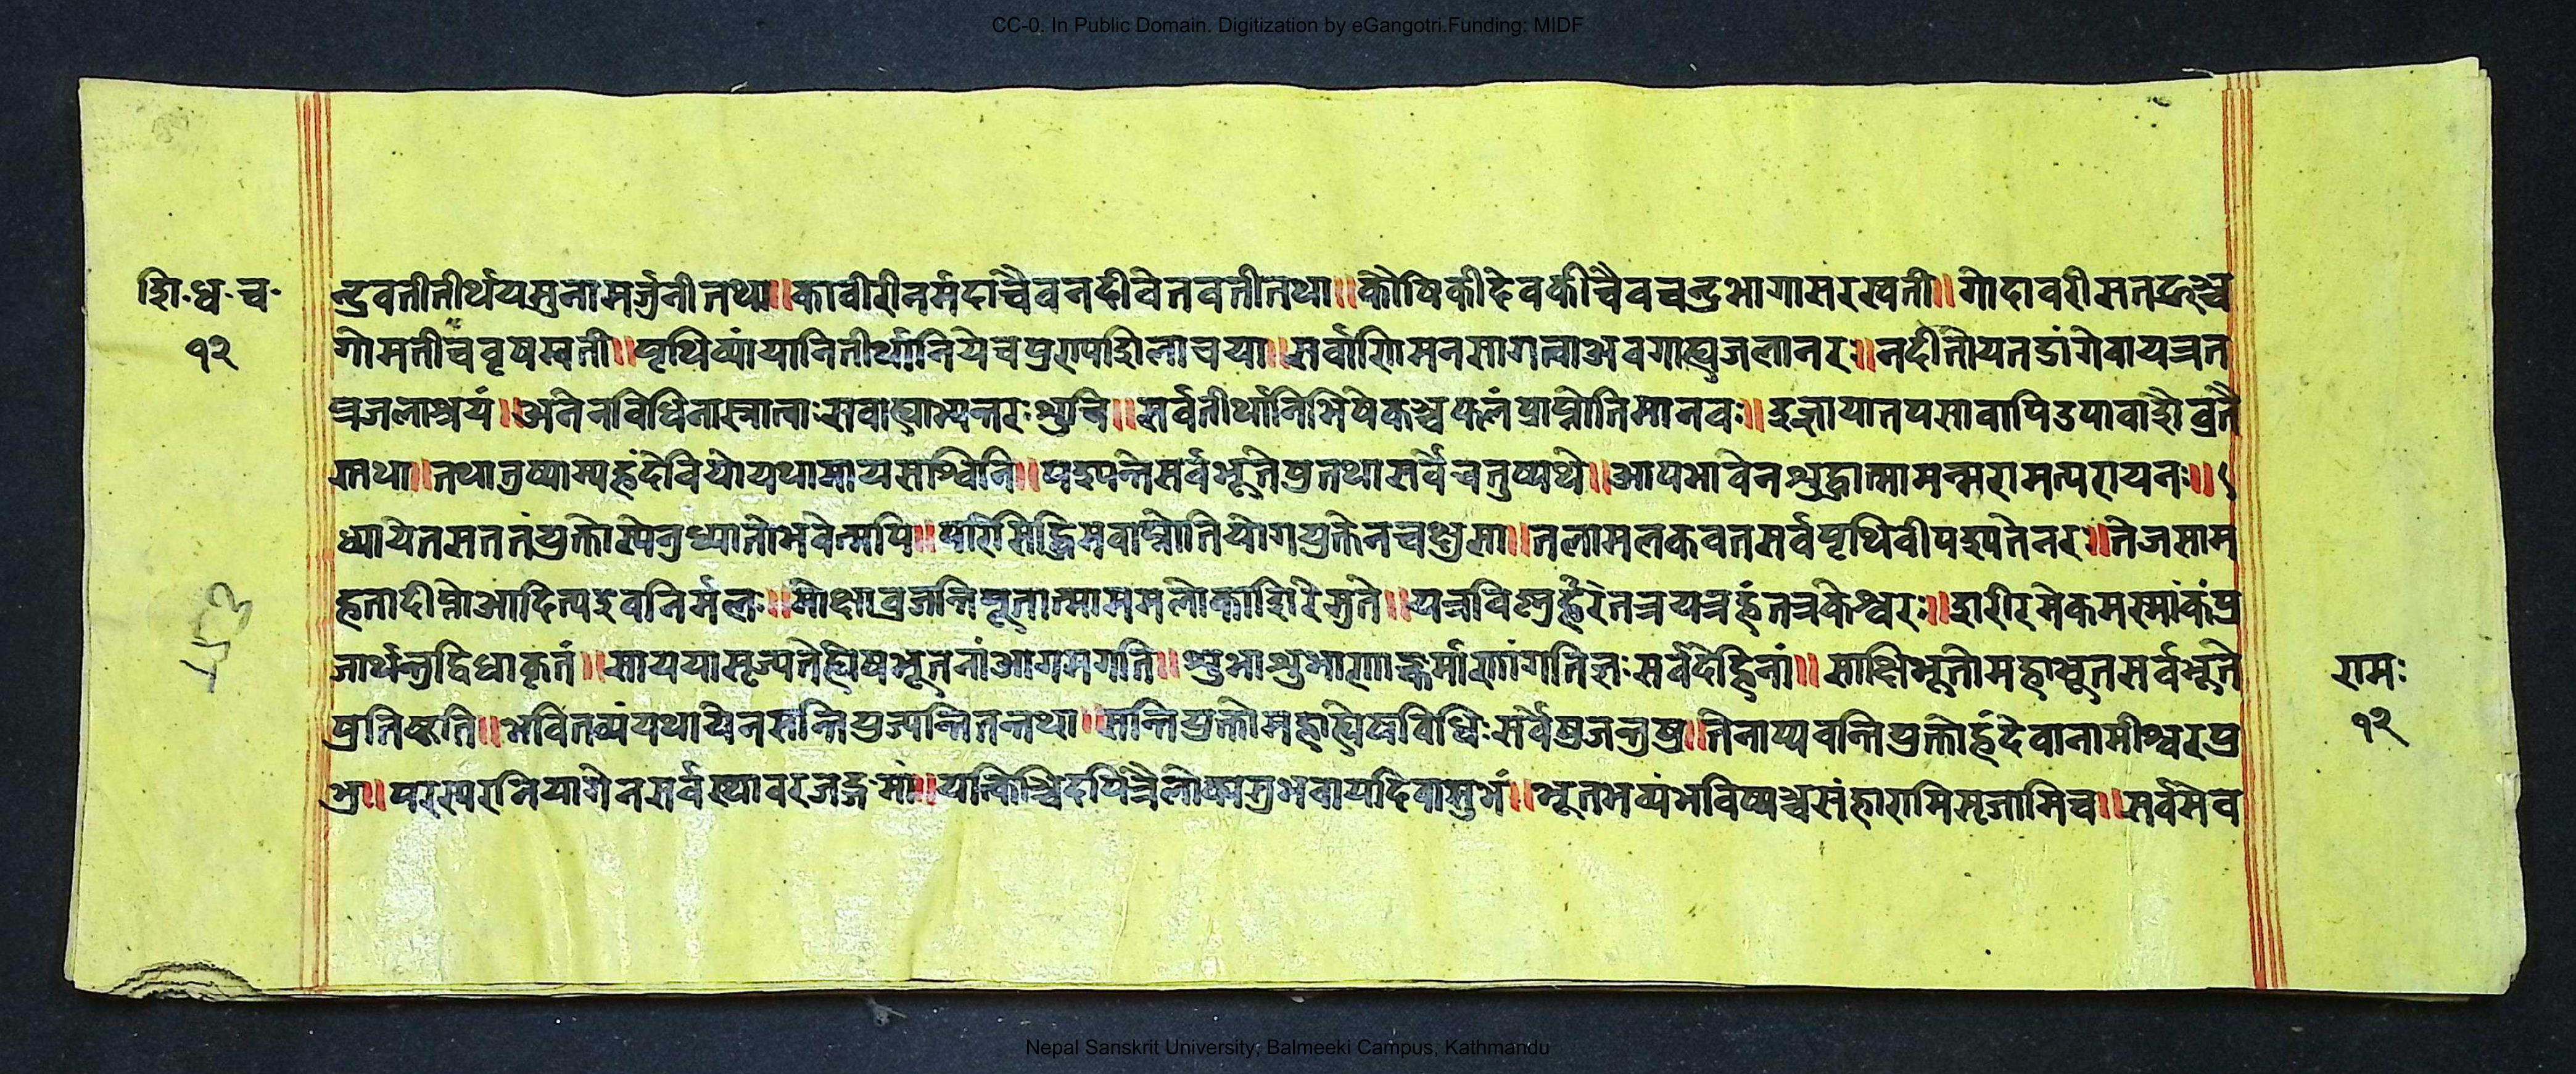 CC-0. In Public Domain. Digitization by eGangotri.Funding: MIDF
शि॰ध॰च॰
१२
न्द्रवतीतीर्थयमुनामर्जनीतथा॥कावीरीनर्मदाचैवनदीवेतवतीतथा॥कौषिकीदेवकीचैवचन्द्रभागासरस्वती॥गोदावरीसतद्रुश्च
गोमतीचवृषस्वती॥पृथिव्यांयानितीर्थानियेचप्रशिलाचया॥सर्वाणिमनसागत्वाअवगाह्यजलानरः॥नदीतोयतडागेवायत्रत
त्रजलाश्रयं॥अनेनविधिनास्नात्वाःसवाह्याभ्यन्तरःशुचि॥सर्वतीर्थानिभिषेकञ्चफलंप्राप्नोतिमानवः॥इज्यायातपसावापिउपावासैव्रतै
स्तथा॥तथातुष्याम्यहंदेवियोयथामायसाश्विनि॥पश्यन्तेसर्वभूतेषुतथासर्वेचतुष्पथे॥आपभावेनशुद्धात्मामन्मरामत्परायनः॥
ध्यायेतसततंयुक्तोस्पेनुध्यातोभवेन्मपि॥परिसिद्धिमवाप्नोतियोगयुक्तेनचक्षुसा॥तलामलकवतसर्वपृथिवीपश्यतेनरः॥तेजसाम
हतादीप्तोआदित्यइवनिर्मलः॥मोक्षाव्रजन्तिपूतात्माममलोकाशिरेमुते॥यत्रविष्णुर्हरेतत्रयत्रहंतत्रकेश्वरः॥शरीरमेकमस्माकंप्र
जार्थन्तुद्विधाकृतं॥माययासृज्यतेह्येषभूतनांआगमगति॥शुभाशुभाणाङ्कर्माणांगतिज्ञःसर्वदेहिनां॥साक्षिभूतोमहाभूतसर्वभूते
षुतिष्ठति॥भवितव्यंयथायेनसन्तियुज्यन्तितन्तथा॥सन्तियुक्तोमहाह्येषविधिःसर्वेषुजन्तुषु॥तेनाप्यवन्तियुक्तोहंदेवानामीश्वरप्र
भु॥परस्परनियागेनसर्वस्थावरजङ्गमां॥यत्किञ्चिदपित्रैलोक्यतुभवायदिवासुभं॥भूतभव्यंभविष्यञ्चसंहारामिसृजामिच॥सर्वमेव
रामः
१२
Nepal Sanskrit University, Balmeeki Campus, Kathmandu